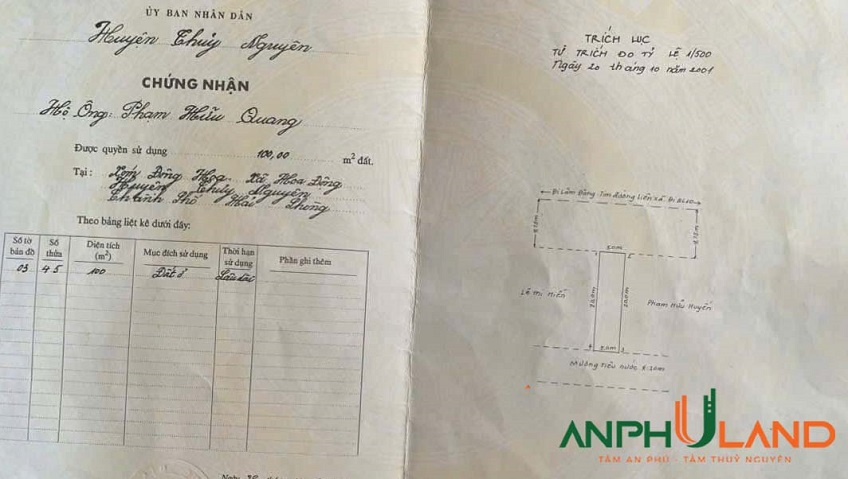 ỦY BAN NHÂN DÂN
Huyện Thủy Nguyên
CHỨNG NHẬN
Hộ Ông: Phạm Hữu Quang
Được quyền sử dụng 100,00 m² đất.
Tại: Xóm Đông Hoa, Xã Hoa Động
Huyện Thủy Nguyên
Thành Phố Hải Phòng
Theo bảng liệt kê dưới đây:
Số tờ bản đồ Số thửa Diện tích (m²) Mục đích sử dụng Thời hạn sử dụng Phần ghi thêm
03 45 100 Đất ở Lâu dài
Ngày
TRÍCH LỤC
TỪ TRÍCH ĐO TỶ LỆ 1/500
Ngày 20 tháng 10 năm 2001
Đi Lâm Động - Tim đường liên xã - Đi
5.0m
20.0m
20.0m
Lê Thị Hiến
Phạm Hữu Huyến
5.0m
Mương tiêu nước
ANPHULAND
TÂM AN PHÚ - TÂM THUỶ NGUYÊN